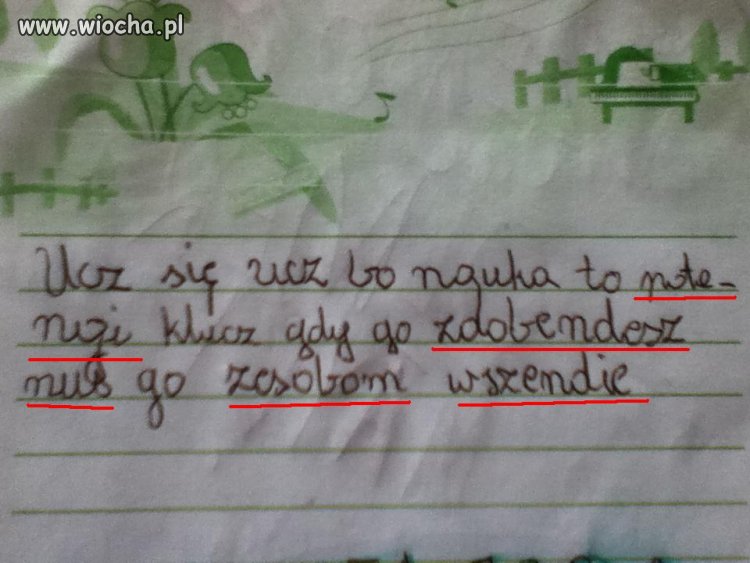 www.wiocha.pl
Ucz się ucz bo nauka to pote-
nrzi klucz gdy go zdobendosz
nuś go zesobom wszendie